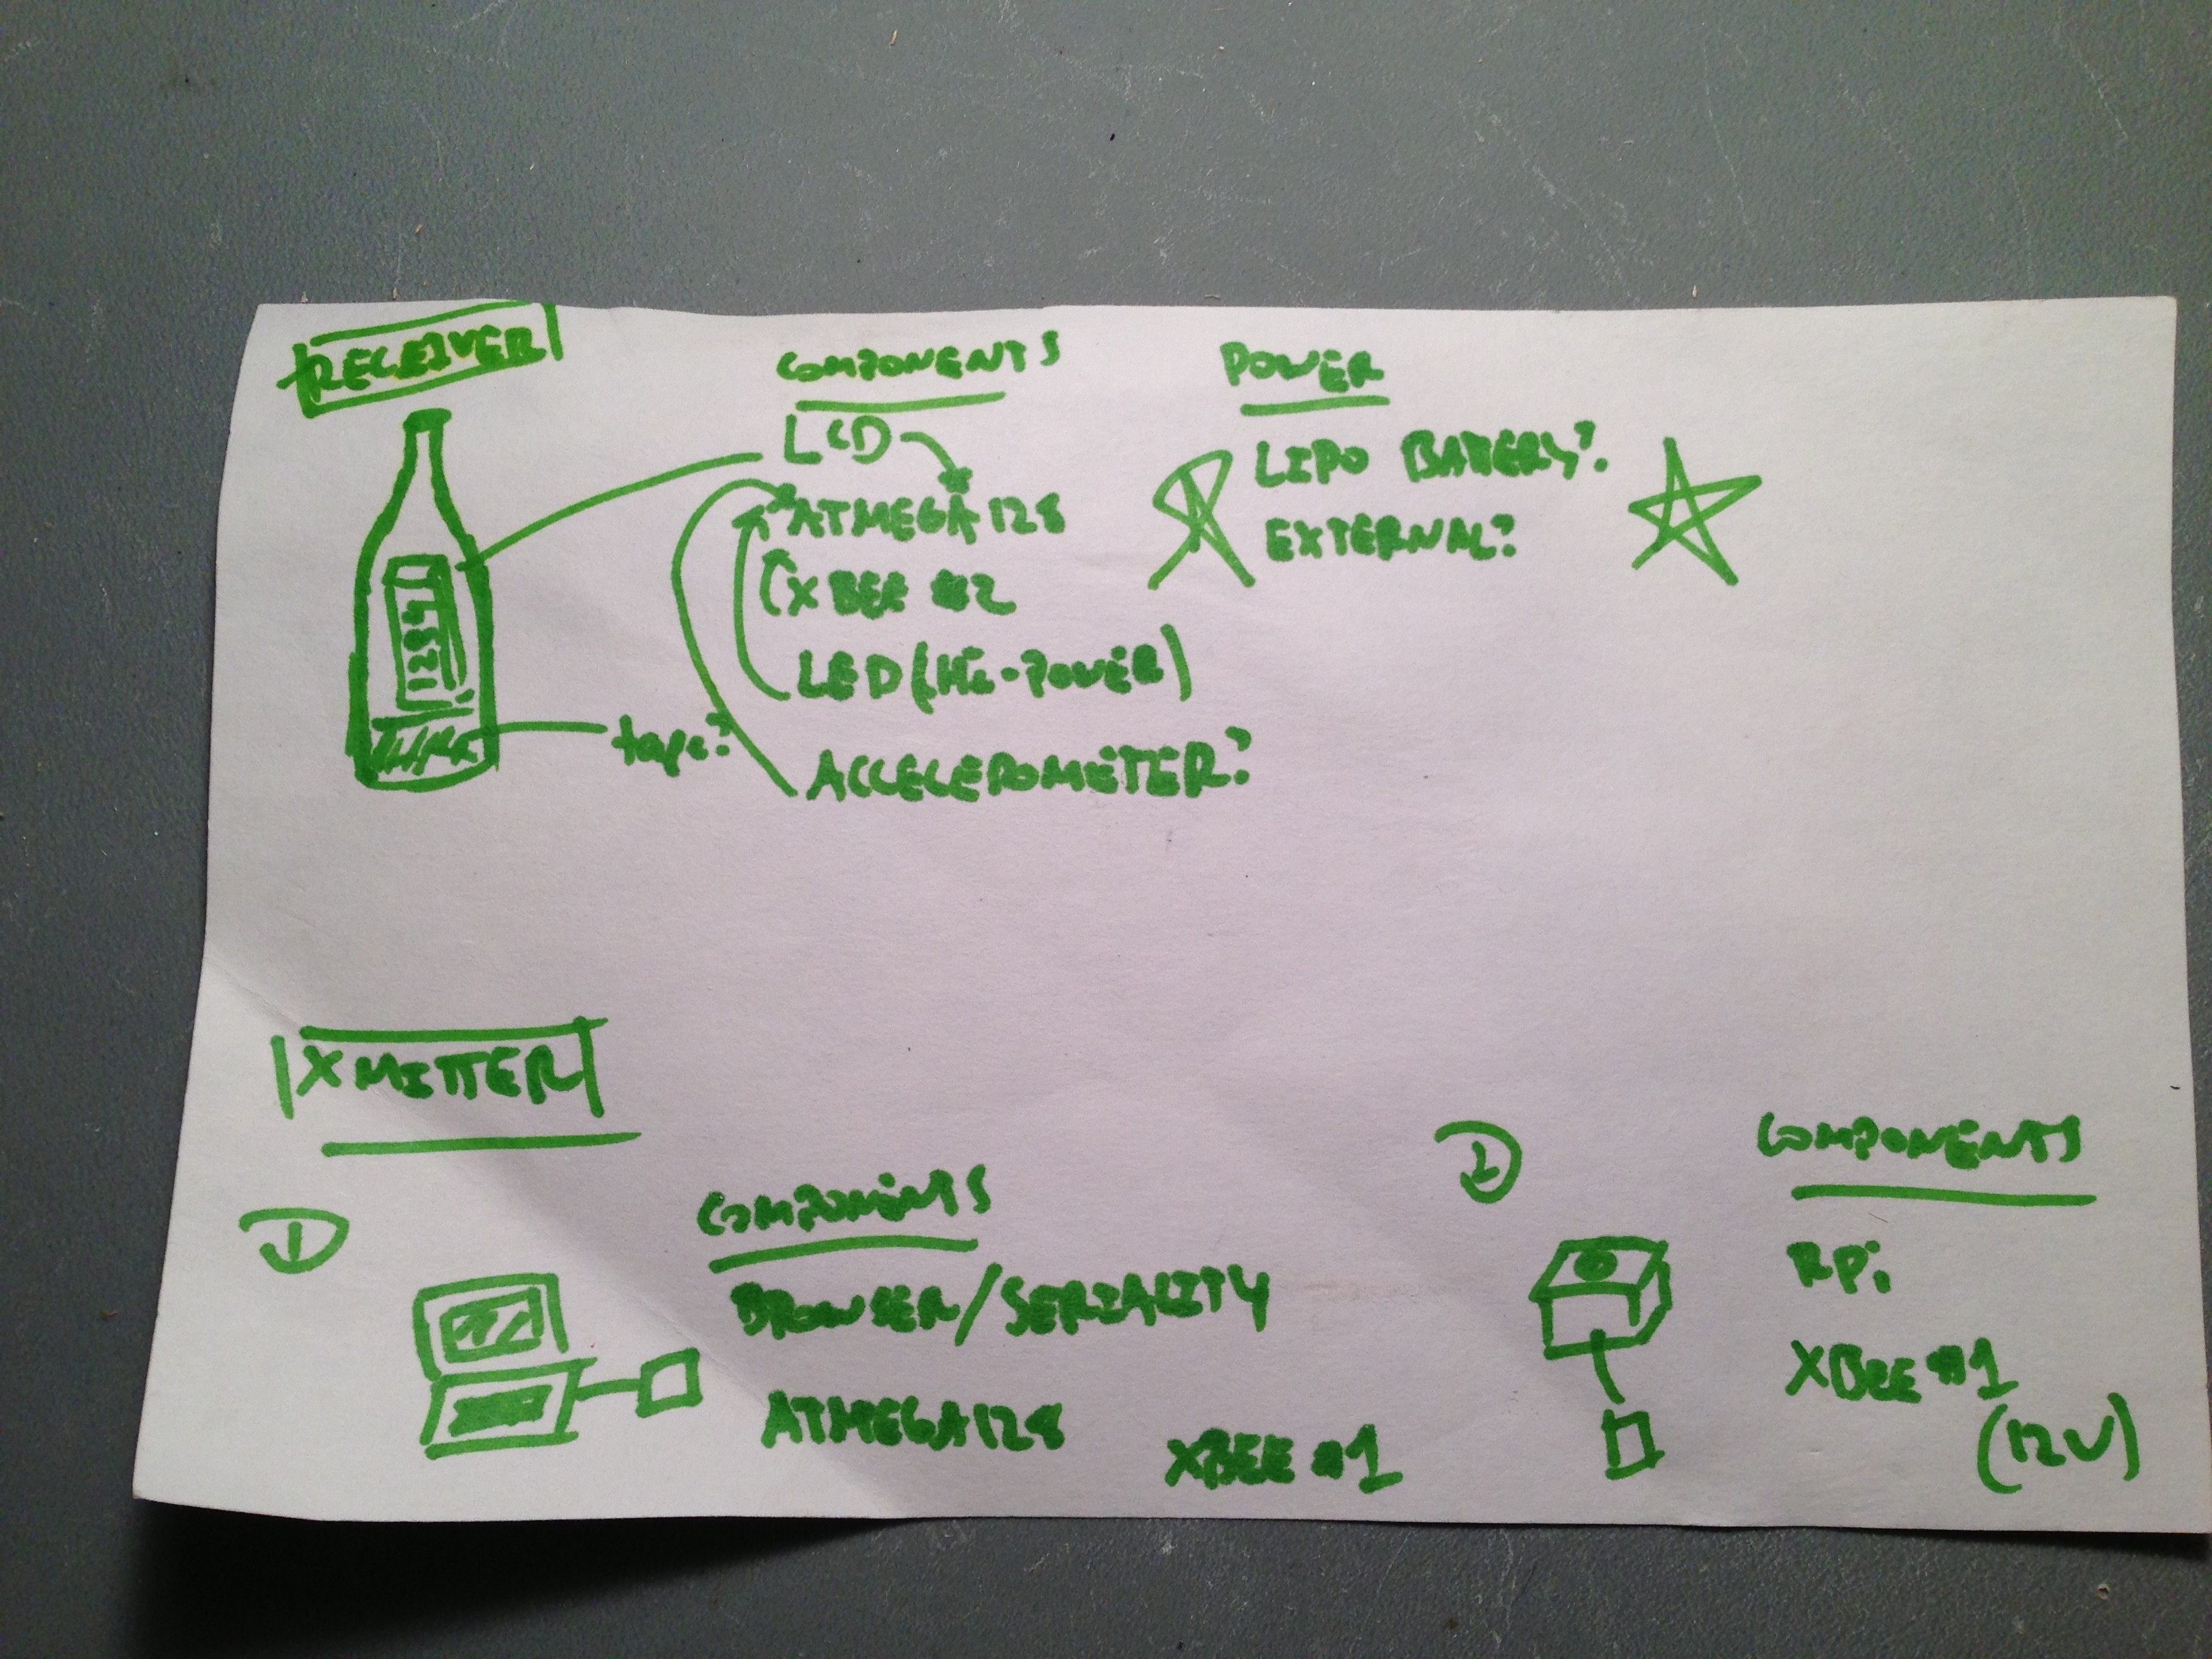 RECEIVER
COMPONENTS
LCD
ATMEGA128
XBEE #2
LED (Hi-POWER)
ACCELEROMETER?
tape?
POWER
LIPO BATTERY?
EXTERNAL?
XMITTER
1
COMPONENTS
BROWSER/SERIALITY
ATMEGA128
XBEE #1
COMPONENTS
RPi
XBEE #1
(12V)